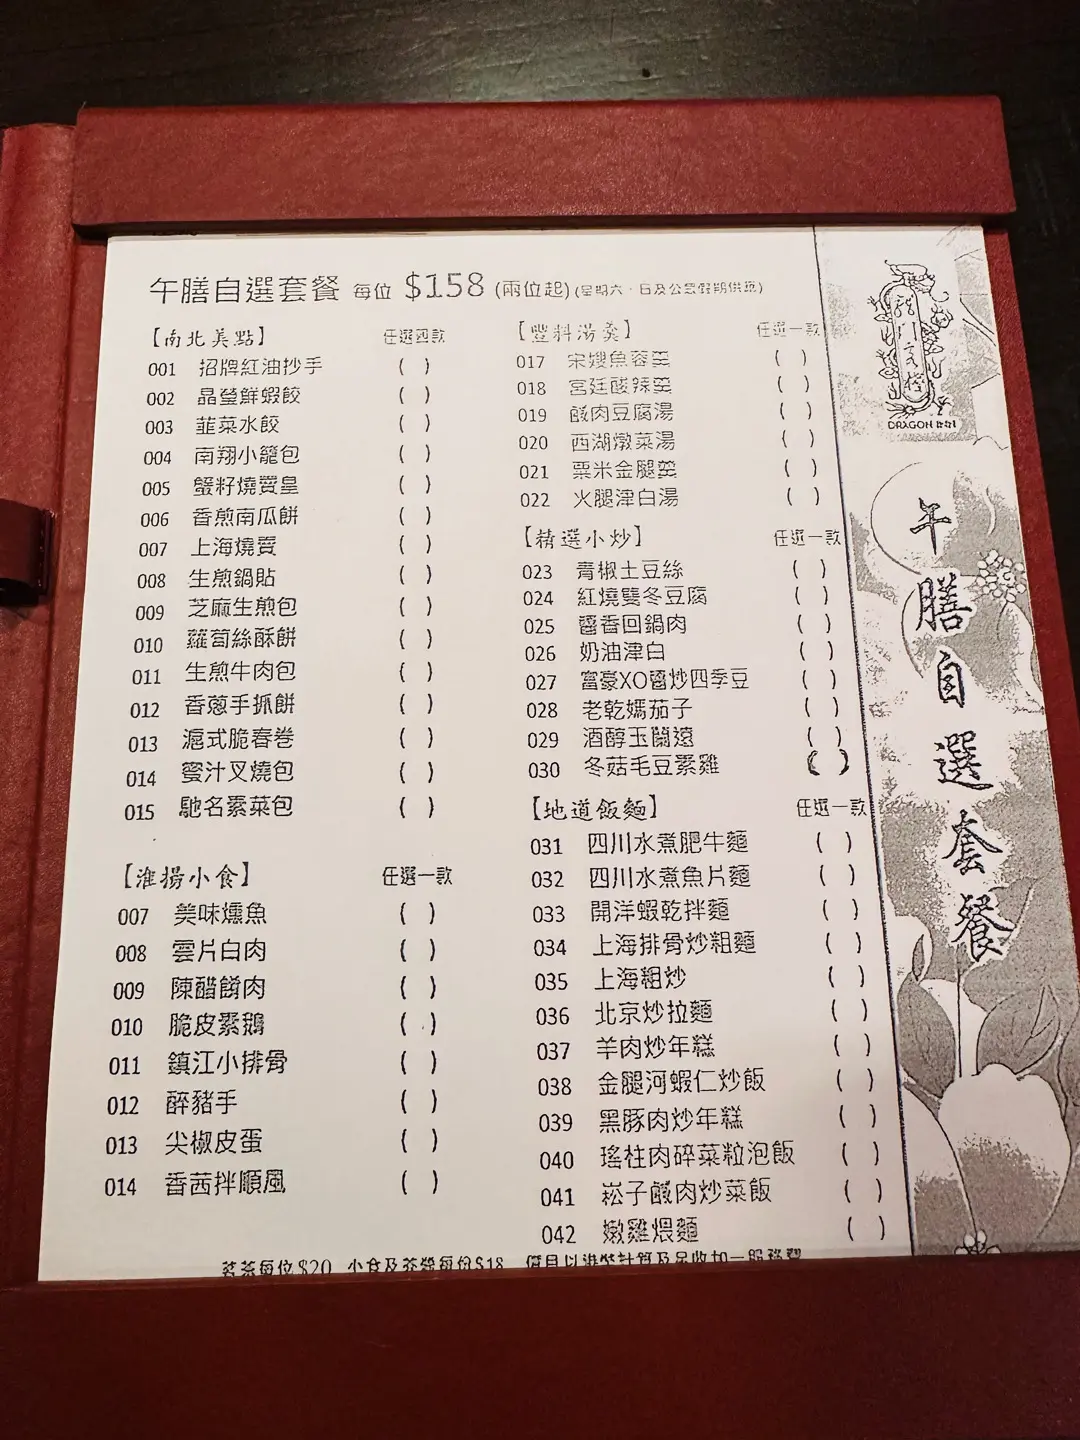 午膳自選套餐 每位 $158 (兩位起) (星期六，日及公眾假期供應)
【南北美點】 任選四款
001 招牌紅油抄手 ( )
002 晶瑩鮮蝦餃 ( )
003 韮菜水餃 ( )
004 南翔小籠包 ( )
005 蟹籽燒賣皇 ( )
006 香煎南瓜餅 ( )
007 上海燒賣 ( )
008 生煎鍋貼 ( )
009 芝麻生煎包 ( )
010 蘿蔔絲酥餅 ( )
011 生煎牛肉包 ( )
012 香蔥手抓餅 ( )
013 滬式脆春卷 ( )
014 蜜汁叉燒包 ( )
015 馳名素菜包 ( )
【淮揚小食】 任選一款
007 美味燻魚 ( )
008 雲片白肉 ( )
009 陳醋餚肉 ( )
010 脆皮素鵝 ( )
011 鎮江小排骨 ( )
012 醉豬手 ( )
013 尖椒皮蛋 ( )
014 香茜拌順風 ( )
【豐料湯羹】 任選一款
017 宋嫂魚蓉羹 ( )
018 宮廷酸辣羹 ( )
019 鹹肉豆腐湯 ( )
020 西湖燉菜湯 ( )
021 粟米金腿羹 ( )
022 火腿津白湯 ( )
【精選小炒】 任選一款
023 青椒土豆絲 ( )
024 紅燒雙冬豆腐 ( )
025 醬香回鍋肉 ( )
026 奶油津白 ( )
027 富豪XO醬炒四季豆 ( )
028 老乾媽茄子 ( )
029 酒醇玉蘭遠 ( )
030 冬菇毛豆素雞 ( )
【地道飯麵】 任選一款
031 四川水煮肥牛麵 ( )
032 四川水煮魚片麵 ( )
033 開洋蝦乾拌麵 ( )
034 上海排骨炒粗麵 ( )
035 上海粗炒 ( )
036 北京炒拉麵 ( )
037 羊肉炒年糕 ( )
038 金腿河蝦仁炒飯 ( )
039 黑豚肉炒年糕 ( )
040 瑤柱肉碎菜粒泡飯 ( )
041 崧子鹹肉炒菜飯 ( )
042 嫩雞煨麵 ( )
茗茶每位$20 小食及茶漿每份$18 價目以港幣計算及另收加一服務費
DRAGON
午膳自選套餐